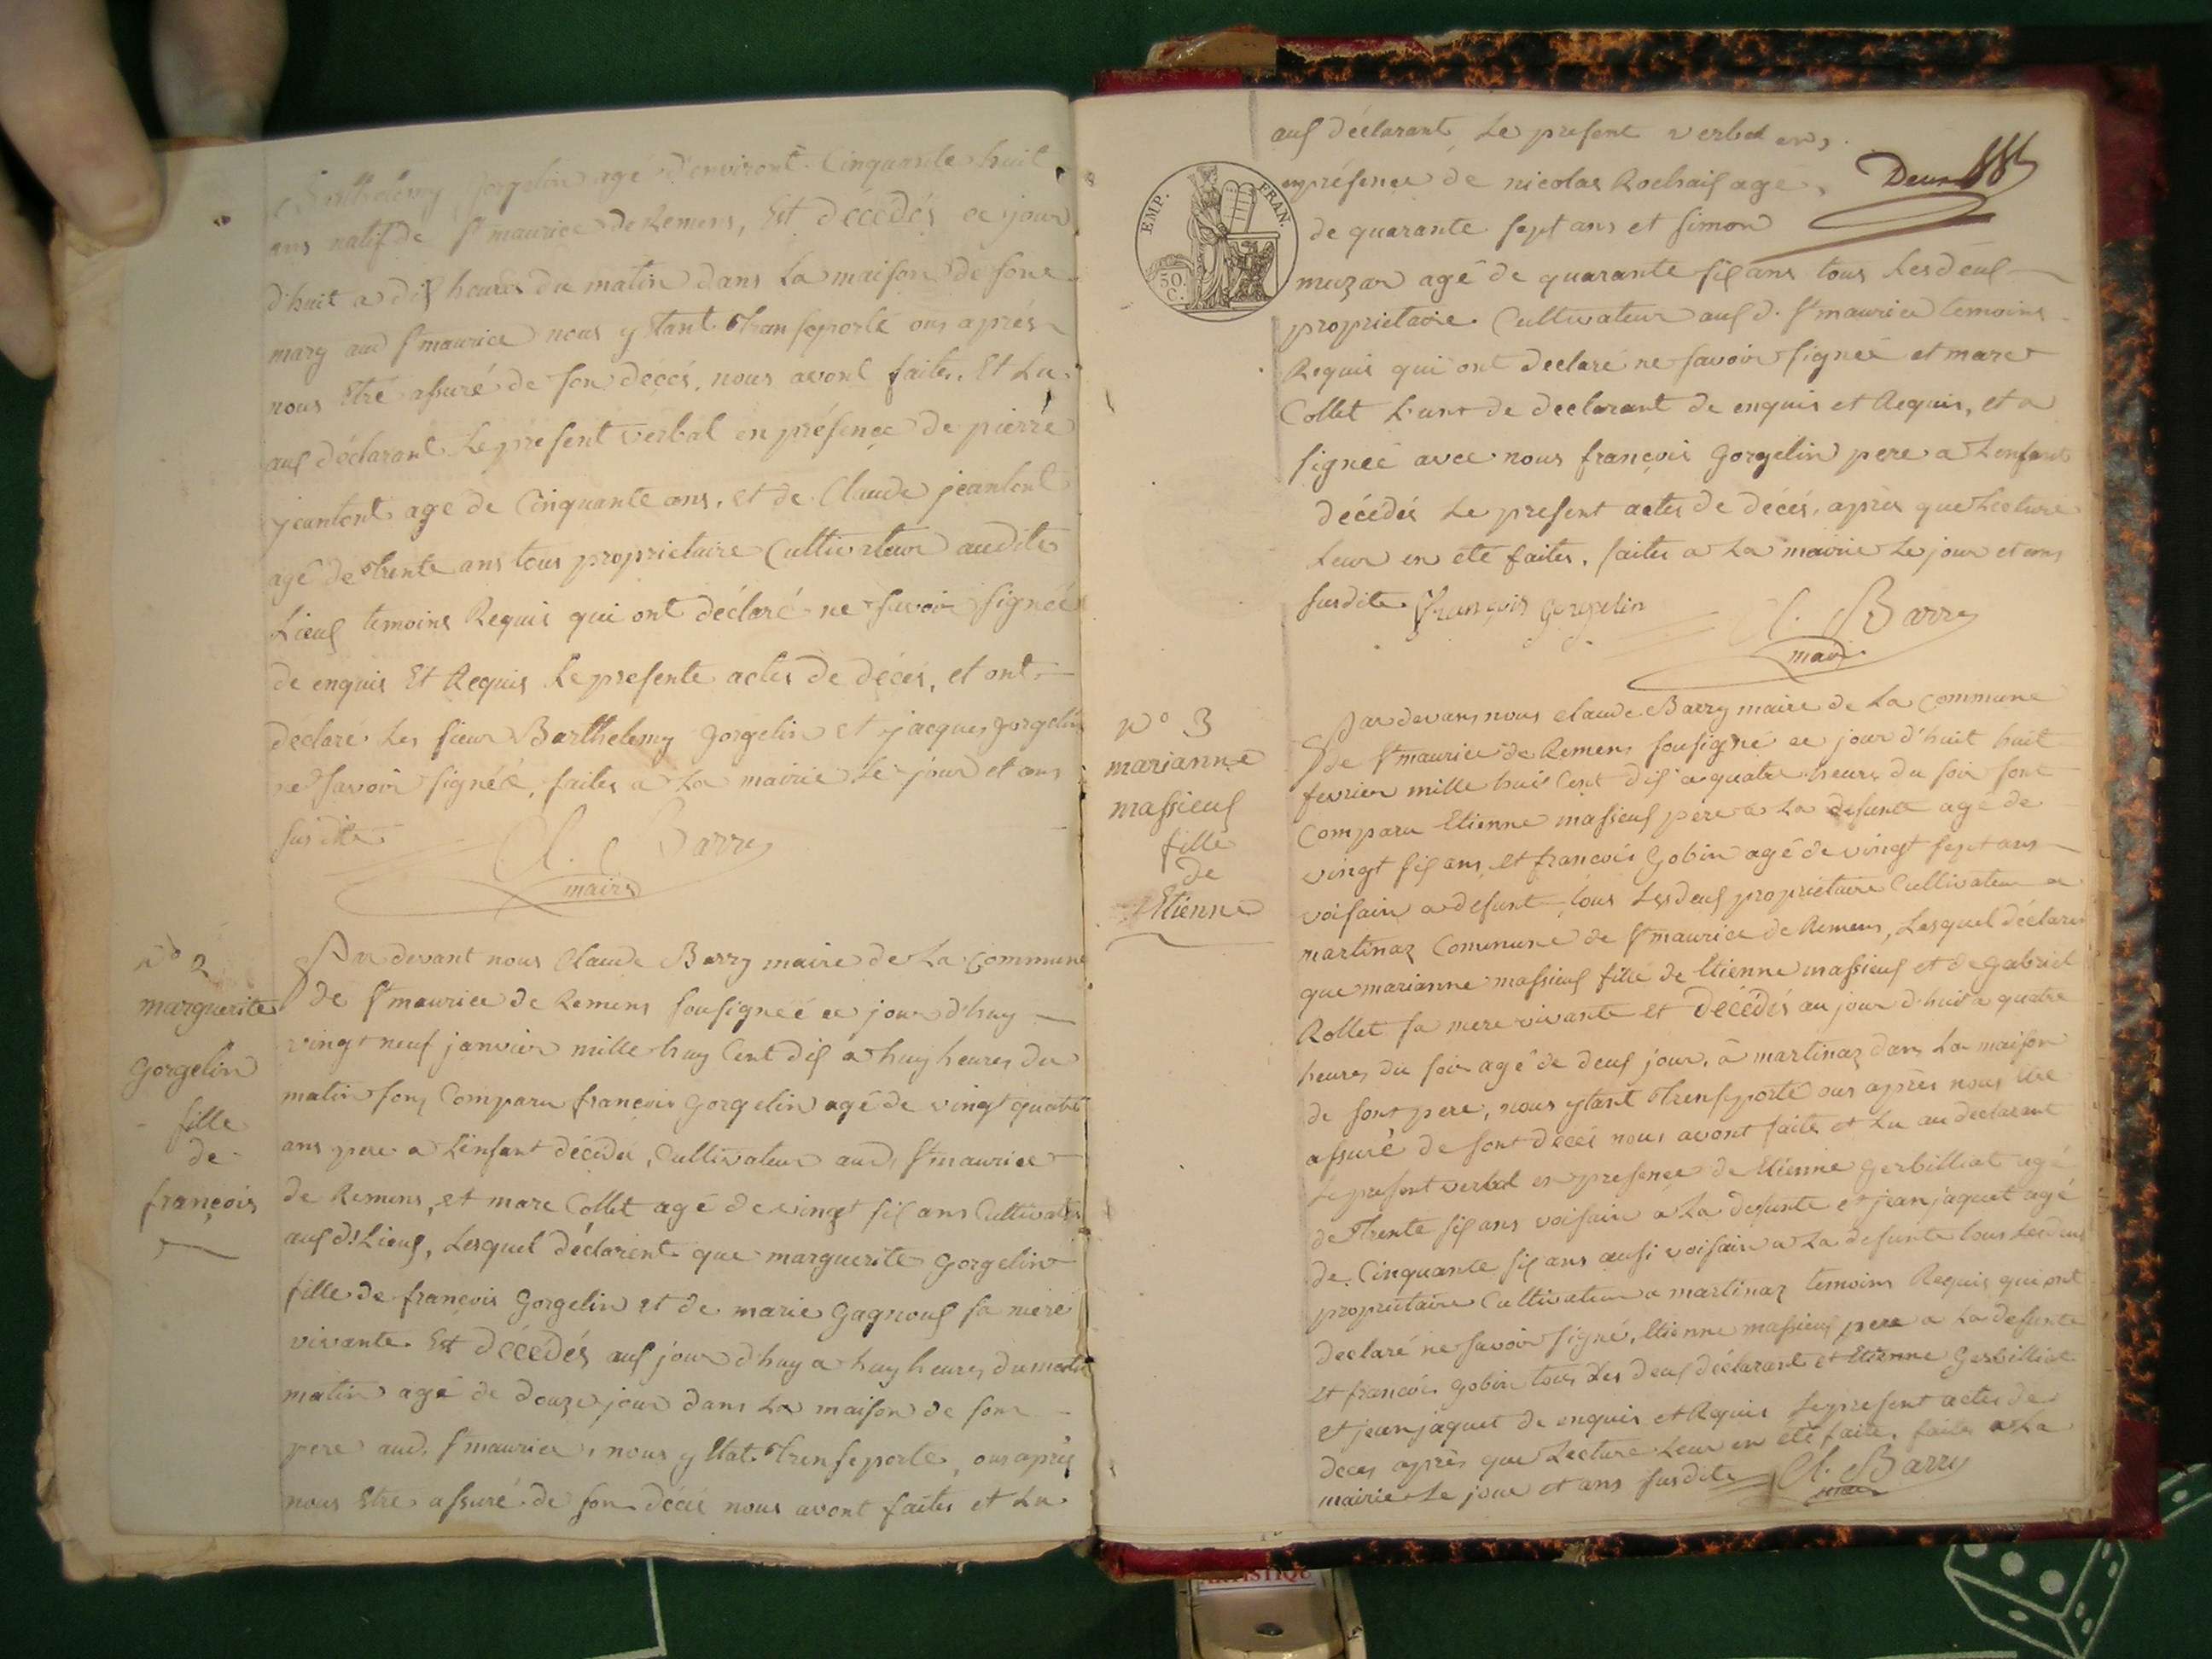 Barthelemy Gorgelin agé d'environt Cinquante huit
ans natif de St maurice De Remens, Est décédés ce jour
d'huit a dix heures du matin dans la maison de sone
marg aud St maurice nous y Etant Transeporté ous après
nous Etre assuré de son décés, nous avont faites, Et Lu
aux déclarant Le présent verbal en présence de pierre
jeantont agé de Cinquante ans, et de Claude jeantont
agé de Trente ans tous proprietaire Cultivateur audite
Lieux temoins Requis qui ont déclaré ne savoir signéé
de enquis Et Requis Le presente actes de décés, et ont
déclaré Les sieur Barthelemy Gorgelin et jacques gorgelin
ne savoir signéé, faites a La mairie Le jour et ans
susdite
Cl. Barry
maire
No 2
marguerite
gorgelin
fille
de
françois
Par devant nous Claude Barry maire de La Commune
de St maurice de Remens sousignéé ce jour d'huy
vingt neuf janvier mille huy Cent dix a huy heures du
matin sont Comparu françois Gorgelin agé de vingt quatre
ans pere a L'enfant décédés, Cultivateur aud, St maurice
de Remens, et marc Collet agé de vingt six ans Cultivateur
aux dt Lieux, Lesquel déclarent que marguerite Gorgelin
fille de françois Gorgelin et de marie Gagnoux sa mere
vivante Est décédés aux jour d'huy a huy heures du matin
matin agé de douze jour dans La maison de son
pere aud, St maurice, nous y Etat Transeporte, ous après
nous Etre assuré de son décé nous avont faites et Lu
aux déclarant, Le present verbal en
Deux
présence de nicolas Rochaix agé
de quarante sept ans et simon
EMP. FRAN.
50. C.
muzar agé de quarante six ans tous Les deux
proprietaire Cultivateur aux d. St maurice temoins
Requis qui ont declaré ne savoir signéé et marc
Collet L'un de declarant de enquis et Requis, et a
signéé avec nous françois Gorgelin pere a L'enfant
décédés Le present actes de décés, après que Lecture
Leur en eté faites, faites a La mairie Le jour et ans
susdite François Gorgelin
Cl. Barry
mair
No 3
marianne
massieux
fille
de
Etienne
Par devant nous claude Barry maire de La Commune
de St maurice de Remens sousigné ce jour d'huit huit
fevrier mille huit Cent dix a quatre heures du soir sont
Comparu Etienne massieux pere a La defunte agé de
vingt six ans, et françois Gobin agé de vingt sept ans
voisain a defunt tous Les deux propriétaire Cultivateur a
martinaz Commune de St maurice de Remens, Lesquel déclarent
que marianne massieux fille de Etienne massieux et de Gabriel
Rollet sa mere vivante et Décédés au jour d'huit a quatre
heures du soir agé de deux jour, a martinaz dans La maison
de sont pere, nous ytant Transeporté ous après nous Etre
assuré de sont décés nous avont faite et Lu au declarant
Le present verbal en presence de Etienne Gerbilliat agé
de Trente six ans voisain a La defunte et jean jaquet agé
de Cinquante six ans aussi voisain a La defunte tous Les deux
proprietaire Cultivateur a martinaz temoins Requis qui ont
declaré ne savoir signé, Etienne massieux pere a La defunte
et françois gobin tous Les deux déclarant et Etienne Gerbilliat
et jean jaquet de enquis et Requis Le present actes de
deces après que Lecture Leur en eté faite, faites a La
mairie Le jour et ans susdite Cl. Barry
mair
ARTISTIQU